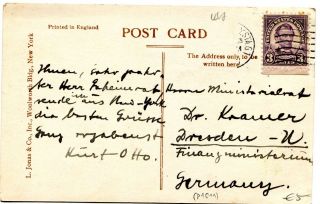 Printed in England
USA
POST CARD
The Address only, to be
written here.
L. Jonas & Co., Inc., Woolworth Bldg, New York
Ihnen, sehr
ter Herr
sende aus New-York
die besten Grüsse
Ganz
Kurt Otto.
Herrn Ministerialrat
Dr. Kramer
Dresden - N.
Finanzministerium
Germany.
3 3
€5